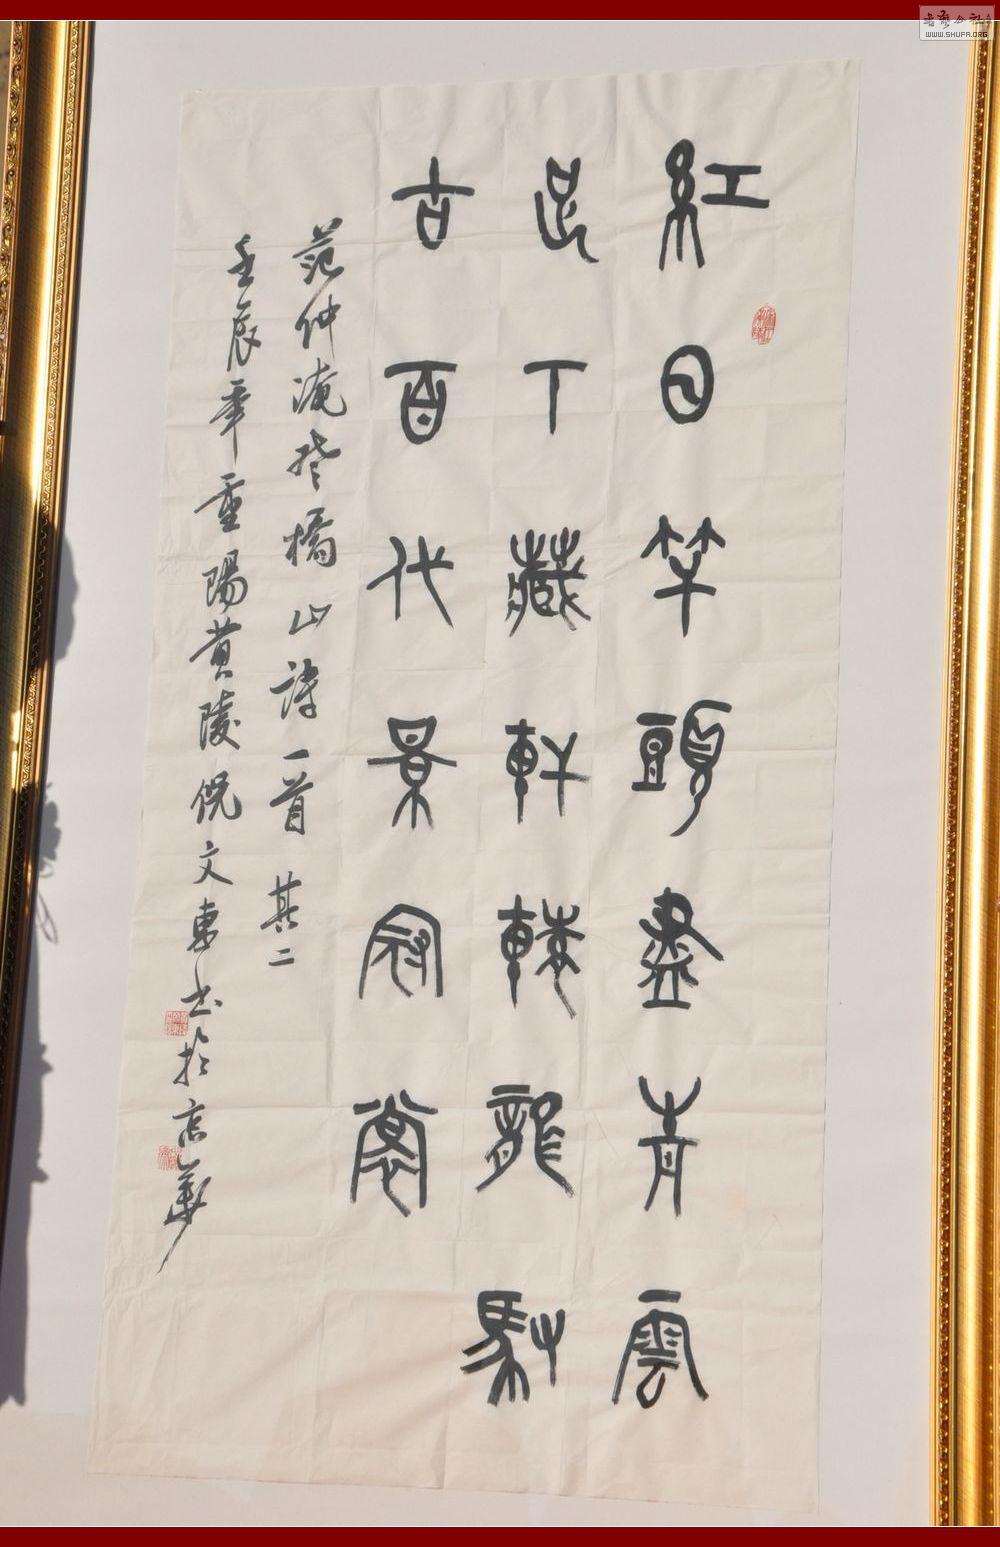 紅日竿頭盡青雲
足下藏軒轅龍馭
古百代景冠裳
范仲淹登橋山詩一首 其二
壬辰年重陽黄陵倪文東书於京華
WWW.SHUFA.ORG